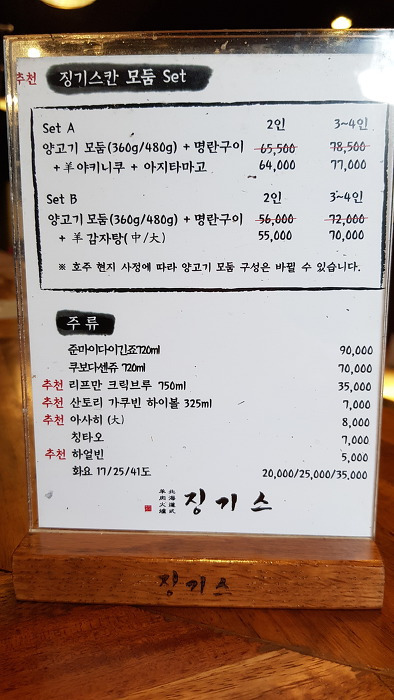 추천 징기스칸 모둠 Set
Set A 2인 3~4인
양고기 모둠(360g/480g) + 명란구이 65,500 78,500
+ 羊야키니쿠 + 아지타마고 64,000 77,000
Set B 2인 3~4인
양고기 모둠(360g/480g) + 명란구이 56,000 72,000
+ 羊감자탕(中/大) 55,000 70,000
※ 호주 현지 사정에 따라 양고기 모둠 구성은 바뀔 수 있습니다.
주류
준마이다이긴죠720ml 90,000
쿠보다센쥬 720ml 70,000
추천 리프만 크릭브루 750ml 35,000
추천 산토리 가쿠빈 하이볼 325ml 7,000
추천 아사히 (大) 8,000
칭타오 7,000
추천 하얼빈 5,000
화요 17/25/41도 20,000/25,000/35,000
北海道式
羊肉火爐
징기스
징기스